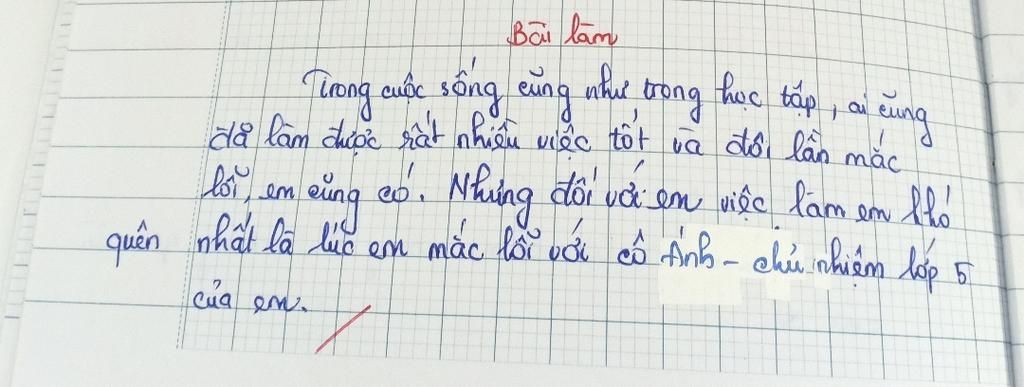 Bài làm
Trong cuộc sống cũng như trong học tập, ai cũng
đã làm được rất nhiều việc tốt và đôi lần mắc
lỗi, em cũng có. Nhưng đối với em việc làm em khó
quên nhất là lúc em mắc lỗi với cô Ánh - chủ nhiệm lớp 5
của em.